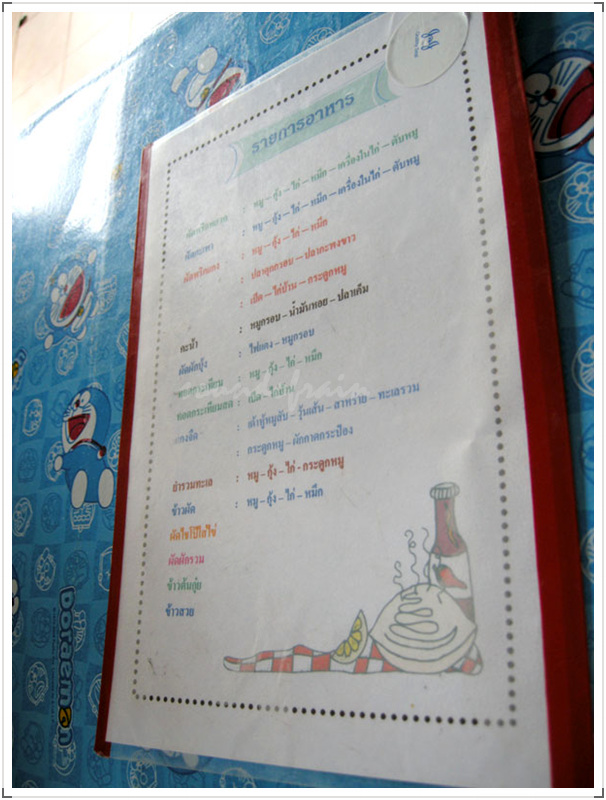 รายการอาหาร
: หมู – กุ้ง – ไก่ – หมึก – เครื่องในไก่ – ตับหมู
ผัดกะเพา : หมู – กุ้ง – ไก่ – หมึก – เครื่องในไก่ – ตับหมู
ผัดพริกแกง : หมู – กุ้ง – ไก่ – หมึก
: ปลาดุกกรอบ – ปลากะพงขาว
: เป็ด – ไก่บ้าน – กระดูกหมู
คะน้า : หมูกรอบ – น้ำมันหอย – ปลาเค็ม
ผัดผักบุ้ง : ไฟแดง – หมูกรอบ
: หมู – กุ้ง – ไก่ – หมึก
ทอดกระเทียมสด : เป็ด – ไก่บ้าน
แกงจืด : เต้าหู้หมูสับ – วุ้นเส้น – สาหร่าย – ทะเลรวม
: กระดูกหมู – ผักกาดกระป๋อง
ยำรวมทะเล : หมู – กุ้ง – ไก่ – กระดูกหมู
ข้าวผัด : หมู – กุ้ง – ไก่ – หมึก
ผัดไชโป๊ใส่ไข่
ผัดผักรวม
ข้าวต้มกุ๋ย
ข้าวสวย
Doraemon